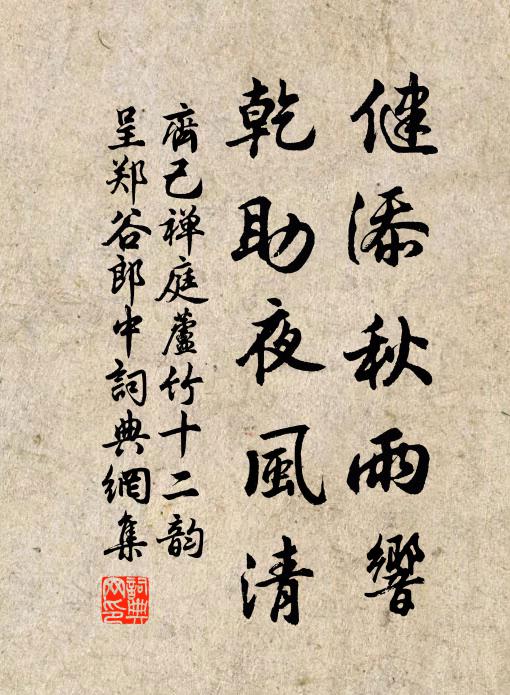 健添秋雨響
乾助夜風清
齊己禅庭蘆竹十二韵
呈郑谷郎中詞典網集
詞典網印